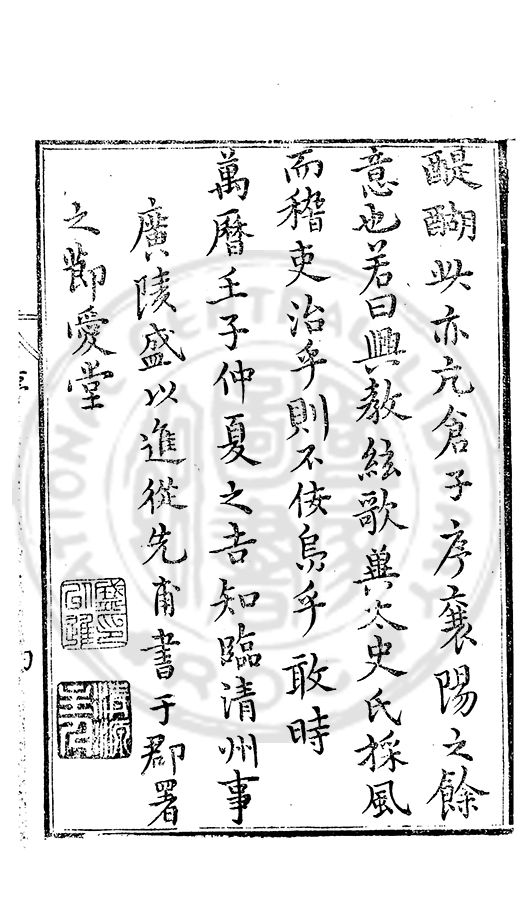 醍醐此亦亢倉子序襄陽之餘
意也若曰興教絃歌與太史氏採風
而稽吏治乎則不佞烏乎敢時
萬曆壬子仲夏之吉知臨清州事
廣陵盛以進從先甫書于郡署
之節愛堂
盛以進印